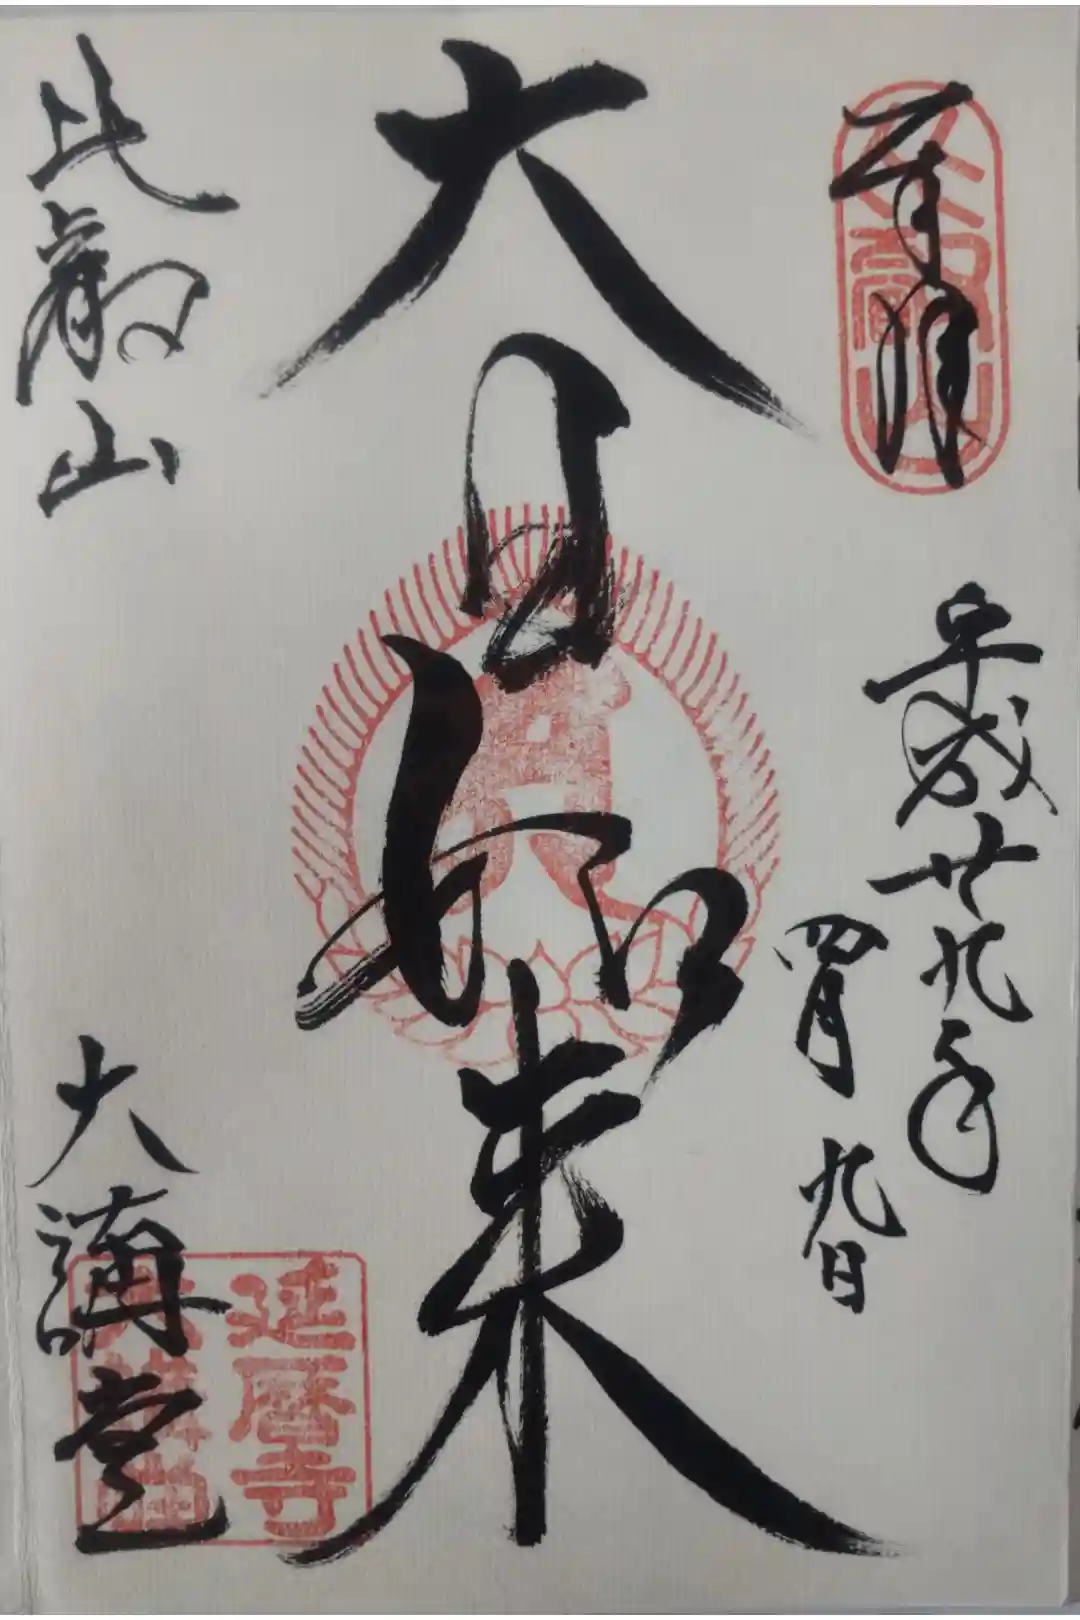 奉拝
比叡山
平成廿九年
四月九日
大日如来
比叡山
大講堂
延暦寺
大講堂